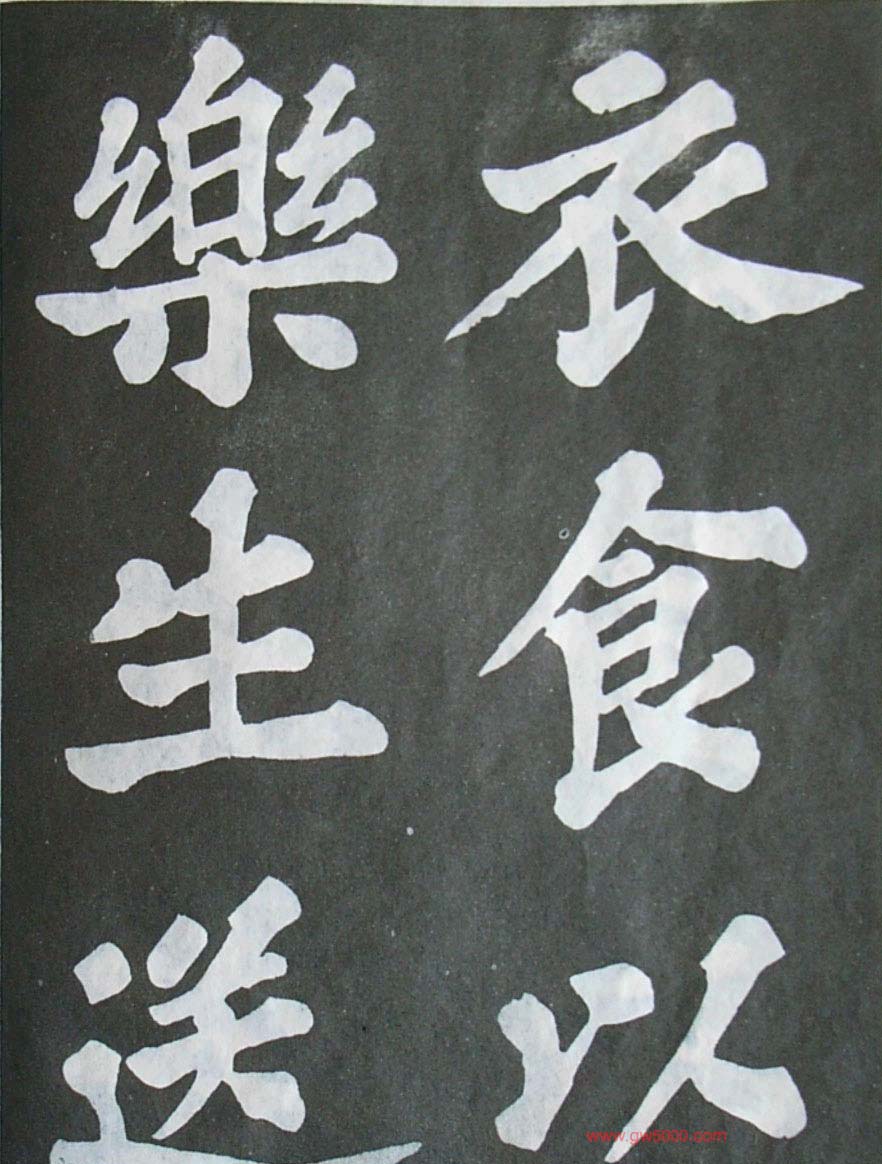 衣食以
樂生送
www.gw5000.com